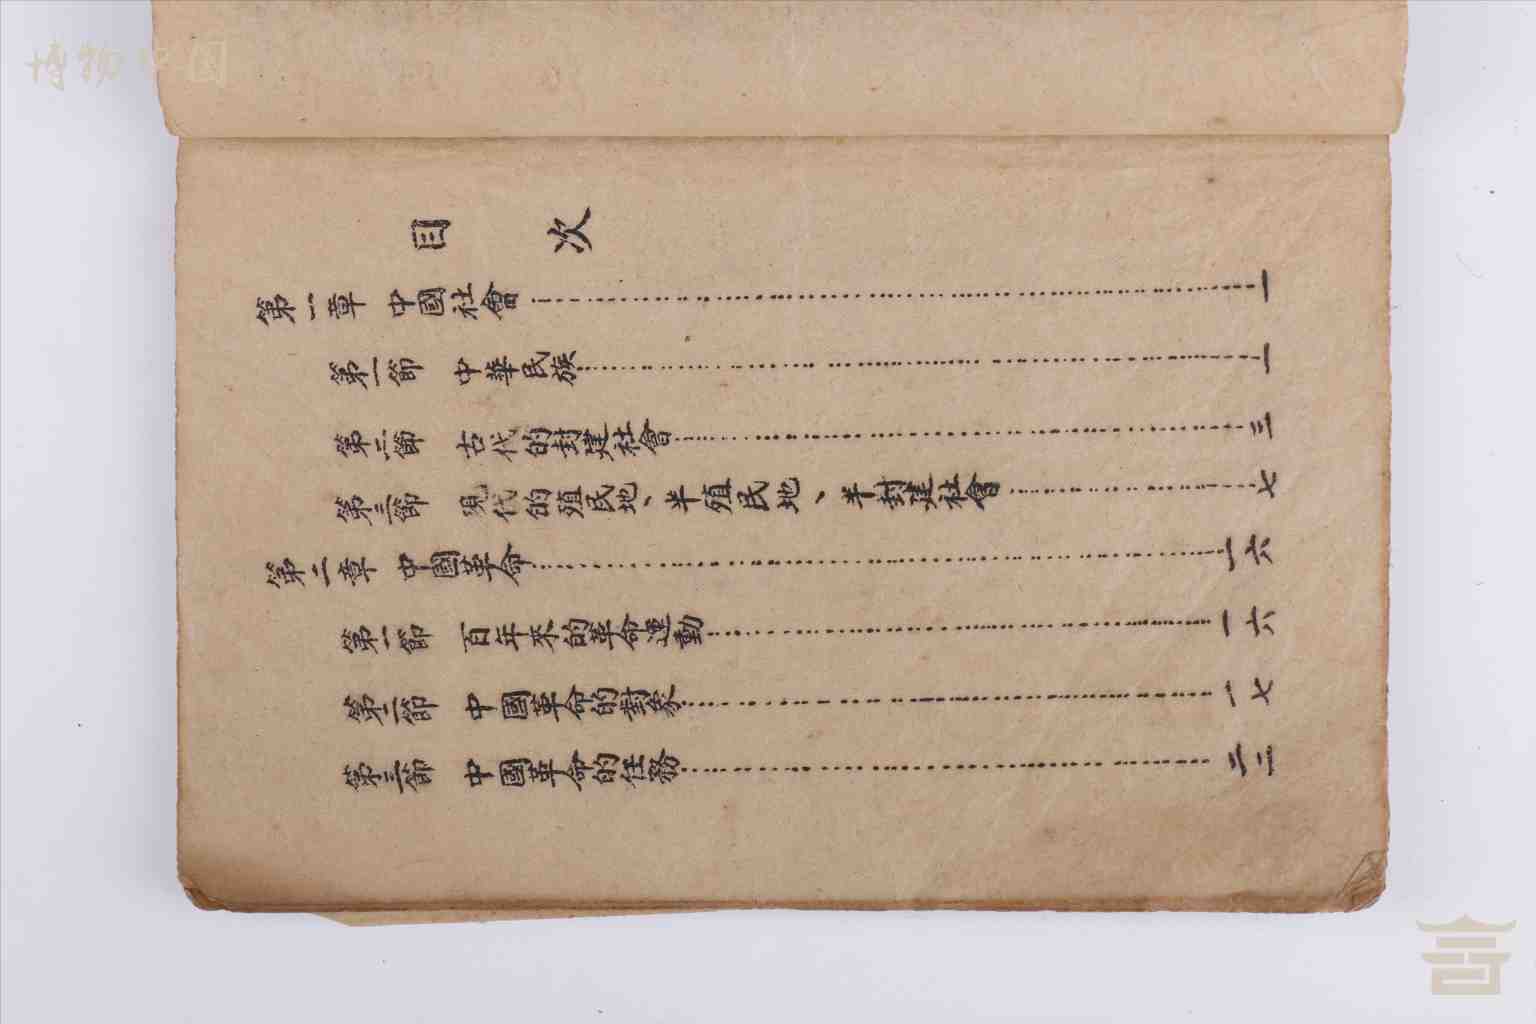 博物中国
目 次
第一章 中國社會……一
第一節 中華民族……一
第二節 古代的封建社會……三
第三節 現代的殖民地、半殖民地、半封建社會……七
第二章 中國革命……一六
第一節 百年來的革命運動……一六
第二節 中國革命的對象……一七
第三節 中國革命的任務……二二